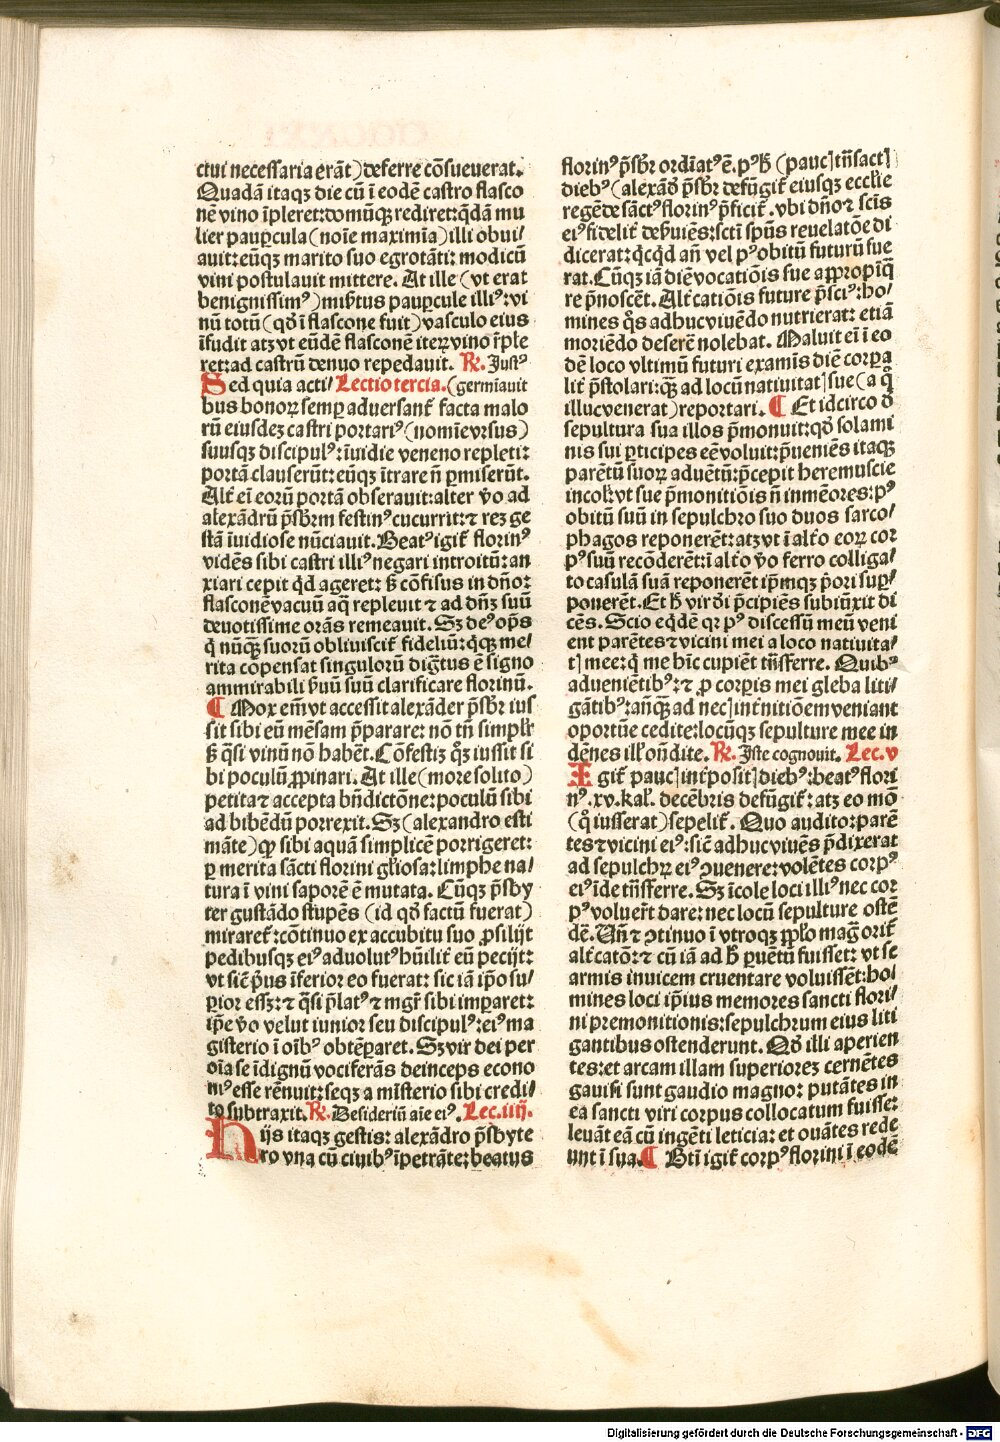 ctui necessaria erāt) deferre cōsueuerat.
Quadā itaqꝫ die cū ī eodē castro flasco
nē vino īpleret: domūqꝫ rediret: q̄dā mu
lier paupercula (noīe maximīa) illi obui/
auit: eūqꝫ marito suo egrotāti: modicū
vini postulauit mittere. At ille (vt erat
benignissimꝰ) misͣtus paupercule illiꝰ: vi
nū totū (qđ ī flascone fuit) vasculo eius
īfudit atqꝫ vt eūdē flasconē iteꝝ vino īple
ret: ad castrū denuo repedauit. R̃. Justꝰ
Sed quia acti/ Lectio tercia. (germīauit
bus bonoꝝ semꝑ aduersant᷑ facta malo
rū eiusdeꝫ castri portariꝰ (nomīe vrsus)
suusqꝫ discipulꝰ: īuidie veneno repleti:
portā clauserūt: eūqꝫ ītrare n̄ ꝑmiserūt.
Alt᷑ eī eorū portā obserauit: alter v̄o ad
alexādrū p̄sbr̄m festinꝰ cucurrit: ⁊ reꝫ ge
stā īuidiose nūciauit. Beatꝰ igit᷑ florinꝰ
vidēs sibi castri illiꝰ negari introitū: an
xiari cepit qͥd ageret: sꝫ cōfisus in dn̄o:
flasconē vacuū aq̄ repleuit ⁊ ad dn̄ꝫ suū
deuotissime orās remeauit. Sꝫ deꝰ oꝑs
q̇ nūqꝫ suorū obliuiscit᷑ fideliū: q̇qꝫ me/
rita cōpensat singulorū dig̃tus ē signo
ammirabili ẜuū suū clarificare florinū.
¶ Mox em̄ vt accessit alexāder p̄sbr̄ ius
sit sibi eū mēsam p̄parare: nō tn̄ simplr̄
sꝫ q̄si vinū nō habēt. Cōfestiꝫ q̄ꝫ iussit si
bi poculū ꝓpinari. At ille (more solito)
petita ⁊ accepta bn̄dictōne: poculū sibi
ad bibēdū porrexit. Sꝫ (alexandro esti
māte) qꝫ sibi aquā simplicē porrigeret:
ꝑ merita sācti florini gl̄iosa: limphe na/
tura ī vini saporē ē mutata. Cūqꝫ p̄sby
ter gustādo stupēs (id qđ factū fuerat)
miraret᷑: cōtinuo ex accubitu suo ꝓsilijt
pedibusqꝫ eiꝰ aduolutꝰ hūilit᷑ eū pecijt:
vt sic̄ p̄us īferior eo fuerat: sic iā ip̄o su/
ꝑior esset: ⁊ q̄si p̄latꝰ ⁊ mgr̄ sibi imꝑaret:
ip̄e v̄o velut iunior seu discipulꝰ: eiꝰ ma
gisterio ī oīb᷒ obtēꝑaret. Sꝫ vir dei per
oīa se īdignū vociferās deinceps econo
miꝰ esse rēnuit: seqꝫ a mīsterio sibi credi/
to subtraxit. R̃. Desideriū aīe eiꝰ. Lec. iiij.
Hijs itaqꝫ gestis: alexādro p̄sbyte
ro vna cū ciuib᷒ īpetrāte: beatus
florinꝰ p̄sbr̄ ordīatꝰ ē. pꝰ h̄ (pauc̄ tn̄sact̄
dieb᷒ (alexād᷑ p̄sbr̄ defūgit᷑ eiusqꝫ eccl̄ie
regēde sāctꝰ florinꝰ p̄ficit᷑. vbi dn̄o ⁊ scīs
eiꝰ fidelit᷑ deẜuiēs: sctī spūs reuelatōe di
dicerat: qͥcqͥd an̄ vel pꝰ obitū futurū fue
rat. Cūqꝫ iā diē vocatiōis sue appropīq̄
re p̄noscēt. Alt᷑catiōis future p̄sciꝰ: ho/
mines q̊s adhuc viuēdo nutrierat: etiā
moriēdo deserē nolebat. Maluit eī ī eo
dē loco vltimū futuri examīs diē corꝑa
lit᷑ p̄stolari: qꝫ ad locū natiuitat̄ sue (a q̊
illuc venerat) reportari. ¶ Et idcirco d̄
sepultura sua illos p̄monuit: qđ solami
nis sui ꝑticipes eē voluit: p̄ueniēs itaqꝫ
parētū suoꝝ aduētū: p̄cepit heremuscie
incol̄: vt sue p̄monitiōis n̄ inmēores: pꝰ
obitū suū in sepulchro suo duos sarco/
phagos reponerēt: atqꝫ vt ī alt᷑o eoꝝ cor
pꝰ suū recōderēt: ī alt᷑o v̄o ferro colliga/
to casulā suā reponerēt ip̄mqꝫ p̄ori suꝑ/
ponerēt. Et h̄ vir di p̄cipiēs subiūxit di
cēs. Scio eqͥdē qꝛ pꝰ discessū meū veni
ent parētes ⁊ vicini mei a loco natiuita/
t̄ mee: q̇ me hīc cupiēt tn̄sferre. Quib᷒
aduenietib᷒: ⁊ ꝓ corꝑis mei gleba liti/
gātib᷒: anqꝫ ad nec̄ int᷑nitiōem veniant
oportūe cedite: locūqꝫ sepulture mee in
dēnes ill̄ on̄dite. R̃. Iste cognouit. Lec. v
Igit᷑ pauc̄ int᷑posit̄ dieb᷒: beatꝰ flori
nꝰ. xv. kal̄. decēbris defūgit᷑: atqꝫ eo mō
(q̊ iusserat) sepelit᷑. Quo audito: parē
tes ⁊ vicini eiꝰ: sic̄ adhuc viuēs p̄dixerat
ad sepulchꝝ eiꝰ ꝯuenere: volētes corpꝰ
eiꝰ īde tn̄sferre. Sꝫ īcole loci illiꝰ nec cor
pꝰ voluer̄t dare: nec locū sepulture ostē
dē. Vn̄ ⁊ ꝯtinuo ī vtroqꝫ pp̄lo mag̃ orit᷑
alt᷑catō: ⁊ cū iā ad h̄ ꝑuētū fuisset: vt se
armis inuicem cruentare voluissēt: ho/
mines loci ip̄ius memores sancti flori/
ni premonitionis: sepulchrum eius liti
gantibus ostenderunt. Qđ illi aperien
tes: et arcam illam superioreꝫ cernētes
gauisi sunt gaudio magno: putātes in
ea sancti viri corpus collocatum fuisse:
leuāt eā cū ingēti leticia: et ouātes rede
unt ī sua. ¶ Btī igit᷑ corpꝰ florini ī eodē
Digitalisierung gefördert durch die Deutsche Forschungsgemeinschaft - DFG